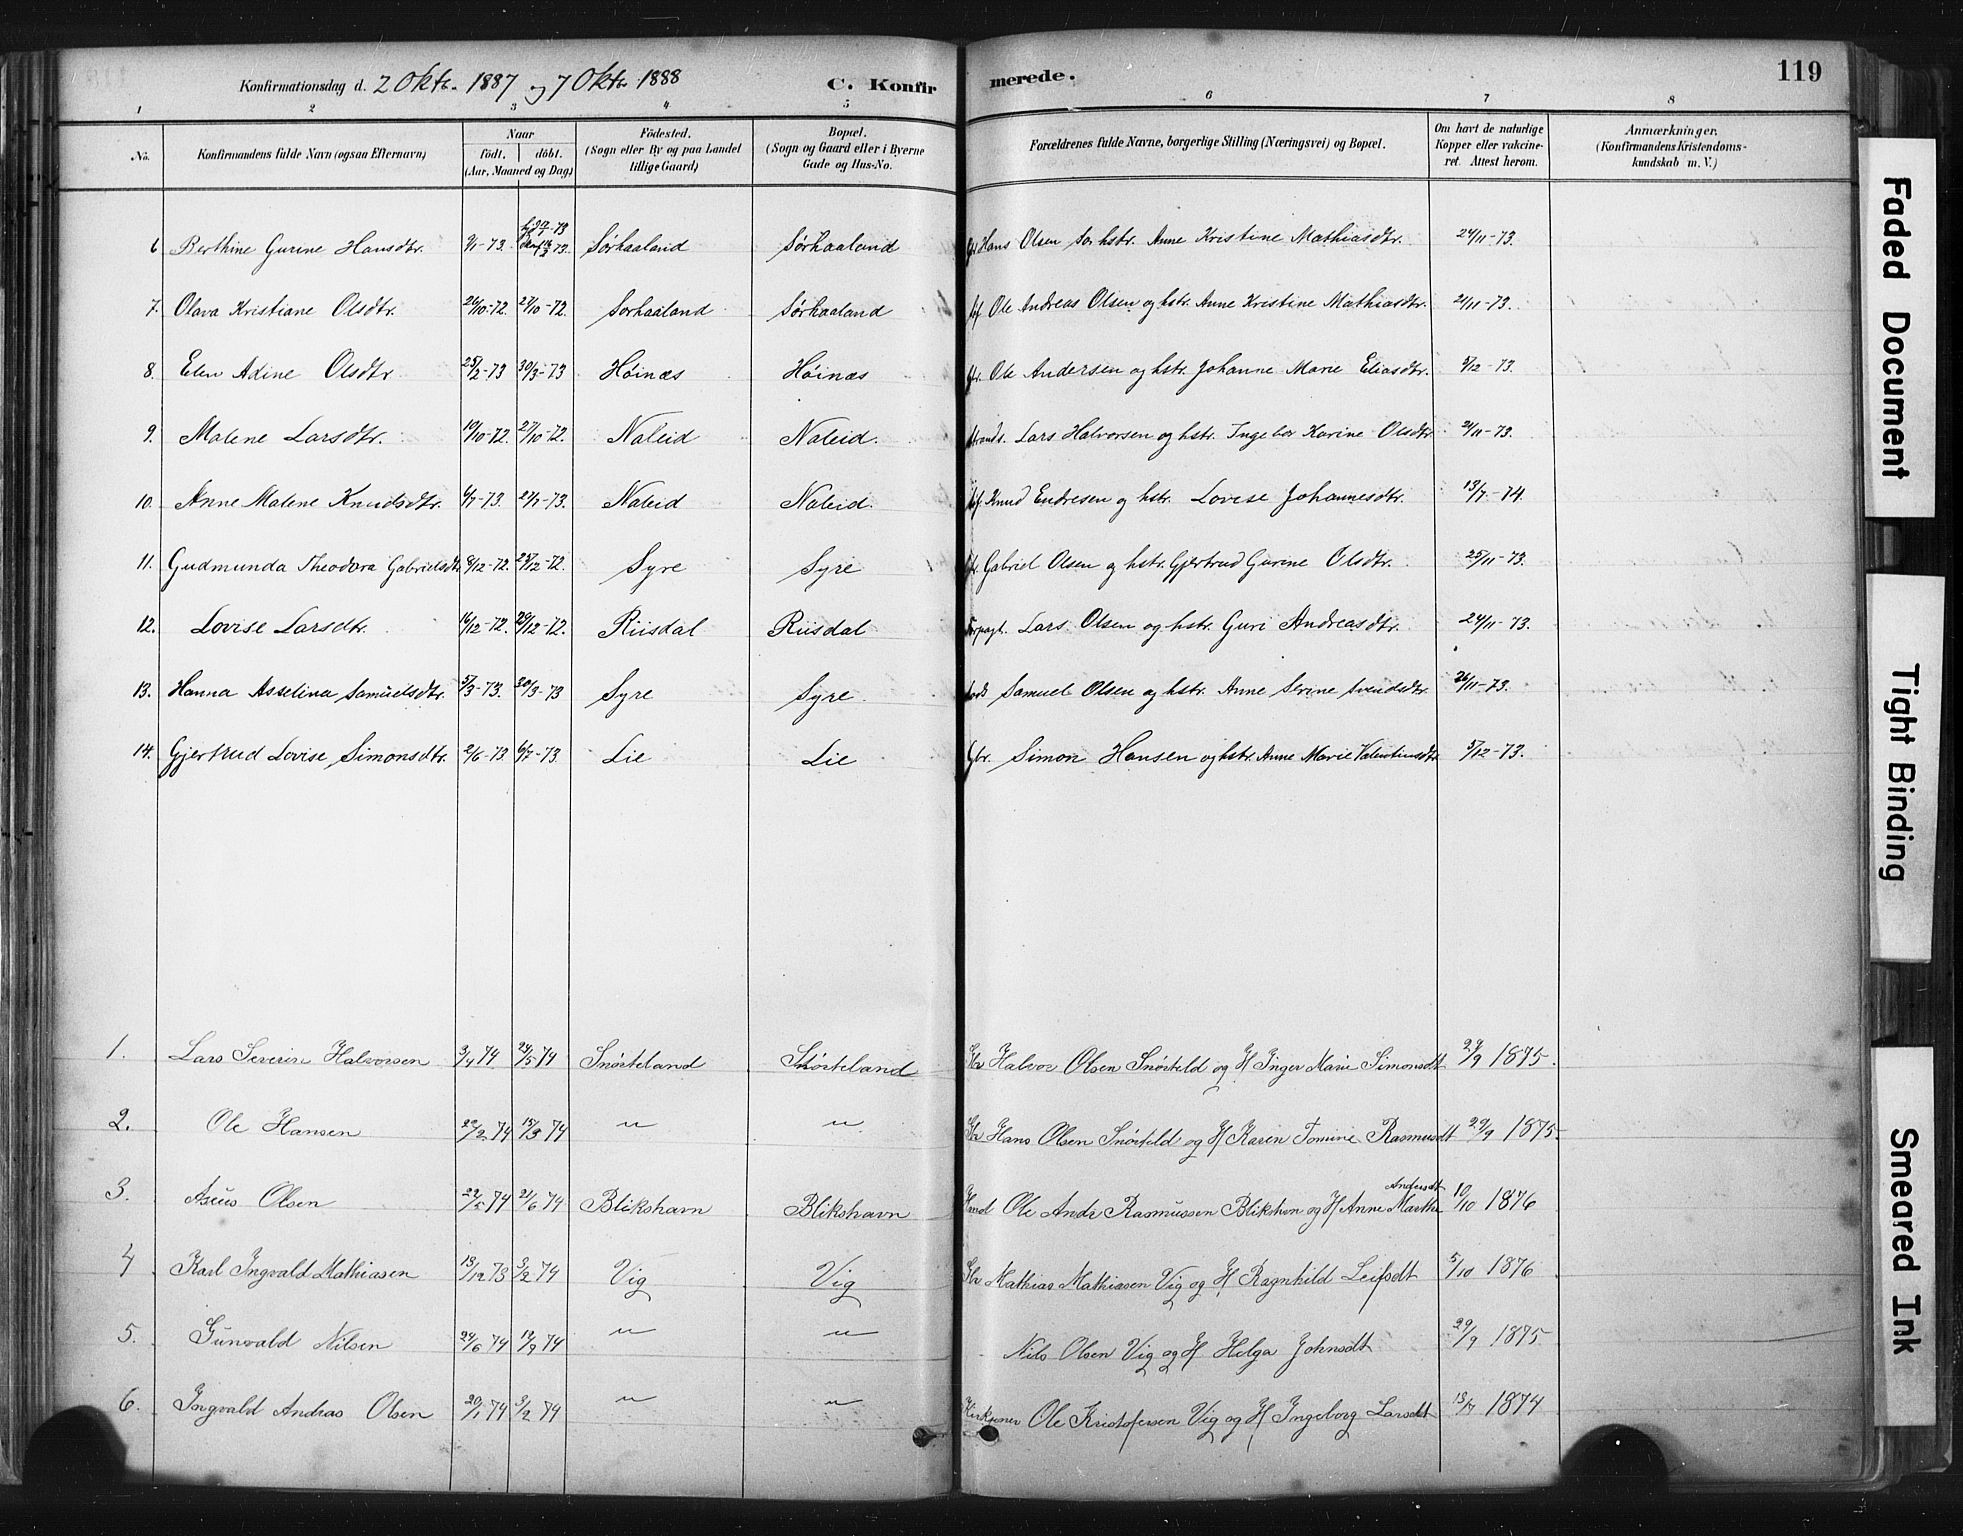 Konfirmationsdag d. 2 Oktr. 1887 og 7 Oktr. 1888 C. Konfirmerede. 119
1 2 3 4 5 6 7 8
No. Konfirmandens fulde Navn (ogsaa Efternavn) Naar födt. döbt. (Aar, Maaned og Dag) Födested. (Sogn eller By og paa Landet tillige Gaard) Bopæl. (Sogn og Gaard eller i Byerne Gade og Hus-No. Forældrenes fulde Navne, borgerlige Stilling (Næringsvei) og Bopæl. Om havt de naturlige Kopper eller vakcineret. Attest herom. Anmærkninger. (Konfirmandens Kristendomskundskab m. V.)
6 Berthine Gurine Hansdtr. 9/1-73 Sörhaaland Sörhaaland Hans Olsen hstr. Anne Kristine Mathiasdtr. 24/11-73.
7. Olava Kristiane Olsdtr. 20/10-72. 27/10-72. Sörhaaland Sörhaaland Ole Andreas Olsen og hstr. Anne Kristine Mathiasdtr. 21/11-73.
8. Elen Adine Olsdtr 25/2-73 30/3-73 Höinæs Höinæs Gbr. Ole Andersen og hstr. Johanne Marie Eliasdtr. 5/12-73.
9. Malene Larsdtr. 10/10-72. 27/10-72. Naleid Naleid. Strands. Lars Halvorsen og hstr. Ingebor Karine Olsdtr 21/11-73.
10. Anne Malene Knudsdtr. 6/7-73. 27/7-73. Naleid Naleid. Knud Endresen og hstr. Lovise Johannesdtr. 13/7-74.
11. Gudmunda Theodora Gabrielsdtr 8/12-72. 25/12-72. Syre Syre Gabriel Olsen og hstr. Gjertrud Gurine Olsdtr. 25/11-73.
12. Lovise Larsdtr. 16/12-72. 29/12-72. Riisdal Riisdal Forpagt. Lars Olsen og hstr. Guri Andreasdtr. 24/11-73.
13. Hanna Asseline Samuelsdtr. 5/3-73. 30/3-73 Syre Syre. Samuel Olsen og hstr. Anne Serine Svendsdtr. 26/11-73.
14. Gjertrud Lovise Simonsdtr. 2/6-73. 6/7-73. Lie Lie Gbr. Simon Hansen og hstr. Anne Marie Valentinsdtr 5/12-73.
1. Lars Severin Halvorsen 3/4 74 24/5 74 Snörteland Snörteland Gbr Halvor Olsen Snörteld og H Inger Marie Simonsdt 29/9 1875.
2. Ole Hansen 22/2 74 15/3 74 " " Gbr Hans Olsen Snörteld og H Karen Tomine Rasmusdt 29/9 1875.
3. Aseus Olsen 21/6 74 Blikshavn Blikshavn Ole Andr Rasmussen Blikshvn og H Anne Marthe Andersdt 10/10 1876
4 Karl Ingvald Mathiasen 13/12 73 3/2 74 Vig Vig Gbr Mathias Mathiasen Vig og H Ragnhild Leifsdt 5/10 1876
5. Gunvald Nilsen 24/6 74 12/9 74 " " Nils Olsen Vig og H Helga Johnsdt 29/9 1875
6. Ingvald Andras Olsen 20/1 74 3/2 74 " " Kirktjener Ole Kristofersen Vig og H Ingeborg Larsdt 1874
Faded Document
Tight Binding
Smeared Ink